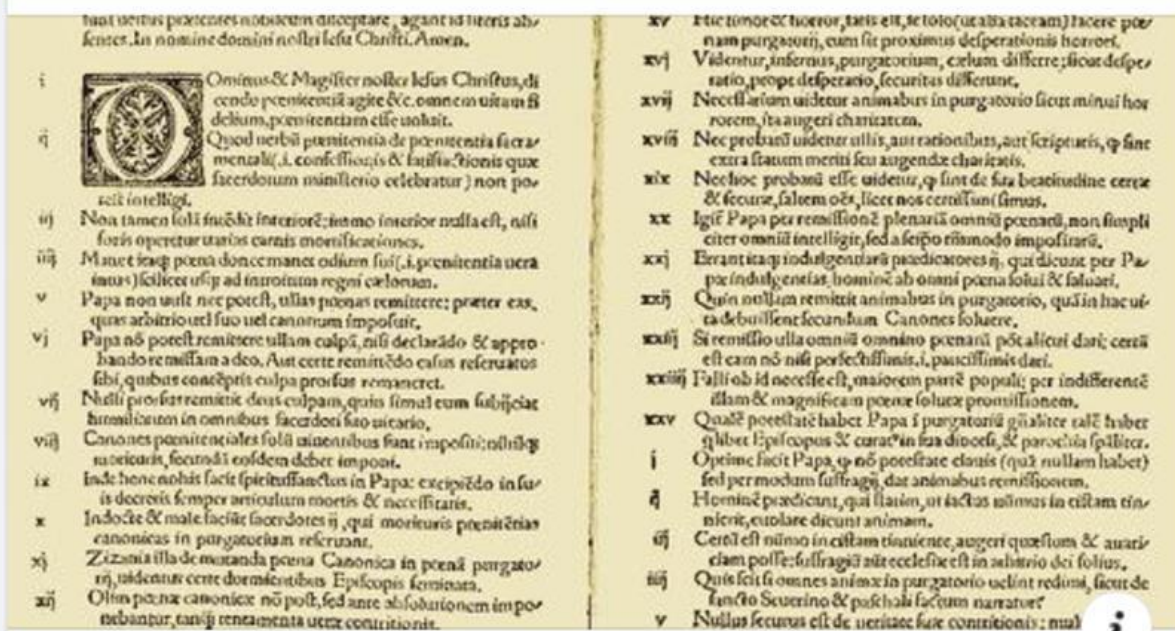 sunt verbis præsentes nobiscum disceptare, agant id literis ab/
sentes. In nomine domini nostri Iesu Christi. Amen.
i Ominus & Magister noster Iesus Christus, di
cendo pœnitentiã agite &c. omnem uitam fi
delium, pœnitentiam esse uoluit.
ij Quod uerbũ pœnitentia de pœnitentia sacra/
mentali (.i. confessionis & satisfactionis quæ
sacerdotum ministerio celebratur) non po/
test intelligi.
iij Non tamen solã intẽdit interiorẽ: immo interior nulla est, nisi
foris operetur uarias carnis mortificationes.
iiij Manet itaqȝ pœna donec manet odium sui (.i. pœnitentia uera
intus) scilicet usqȝ ad introitum regni cælorum.
v Papa non uult nec potest, ullas pœnas remittere: præter eas,
quas arbitrio uel suo uel canonum imposuit.
vj Papa nõ potest remittere ullam culpã, nisi declarãdo & appro/
bando remissam a deo. Aut certe remittẽdo casus reseruatos
sibi, quibus contẽptis culpa prorsus remaneret.
vij Nulli prorsus remittit deus culpam, quin simul eum subijciat
humiliatum in omnibus sacerdoti suo uicario.
viij Canones pœnitentiales solũ uiuentibus sunt impositi: nihilqȝ
morituris, secundũ eosdem debet imponi.
ix Inde bene nobis facit spiritussanctus in Papa: excipiẽdo in su/
is decretis semper articulum mortis & necessitatis.
x Indocte & male faciũt sacerdotes ij, qui morituris pœnitẽtias
canonicas in purgatorium reseruant.
xj Zizania illa de mutanda pœna Canonica in pœnã purgato/
rij, uidentur certe dormientibus Episcopis seminata.
xij Olim pœnæ canonicæ nõ post, sed ante absolutionem impo/
nebantur, tanqȝ tentamenta ueræ contritionis.
xv Hic timor & horror, satis est, se solo (ut alia taceam) facere pœ/
nam purgatorij, cum sit proximus desperationis horrori.
xvj Videntur, infernus, purgatorium, cælum differre: sicut despe/
ratio, prope desperatio, securitas differunt.
xvij Necessarium uidetur animabus in purgatorio sicut minui hor
rorem, ita augeri charitatem.
xviij Nec probatũ uidetur ullis, aut rationibus, aut scripturis, ꝙ sint
extra statum meriti seu augendæ charitatis.
xix Nec hoc probatũ esse uidetur, ꝙ sint de sua beatitudine certæ
& securæ, saltem oẽs, licet nos certissimi simus.
xx Igit᷑ Papa per remissionẽ plenariã omniũ pœnarũ, non simpli
citer omniũ intelligit, sed a seipso tãtummodo impositarũ.
xxj Errant itaqȝ indulgentiarũ prædicatores ij, qui dicunt per Pa/
pæ indulgentias, hominẽ ab omni pœna solui & saluari.
xxij Quin nullam remittit animabus in purgatorio, quã in hac ui/
ta debuissent secundum Canones soluere.
xxiij Si remissio ulla omniũ omnino pœnarũ põt alicui dari: certũ
est eam nõ nisi perfectissimis .i. paucissimis dari.
xxiiij Falli ob id necesse est, maiorem partẽ populi: per indifferentẽ
illam & magnificam pœnæ solutæ promissionem.
xxv Qualẽ potestatẽ habet Papa ĩ purgatoriũ gñaliter talẽ habet
qlibet Episcopus & curat⁹ in sua diocesi, & parochia spãliter.
j Optime facit Papa, ꝙ nõ potestate clauis (quã nullam habet)
sed per modum suffragij, dat animabus remissionem.
ij Hominẽ prædicant, qui statim, ut iactus nũmus in cistam tin/
nierit, euolare dicunt animam.
iij Certũ est nũmo in cistam tinniente, augeri quæstum & auari/
ciam posse: suffragiũ aũt ecclesiæ est in arbitrio dei solius.
iiij Quis scit si omnes animæ in purgatorio uelint redimi, sicut de
sancto Seuerino & paschali factum narratur?
v Nullus securus est de ueritate suæ contritionis: